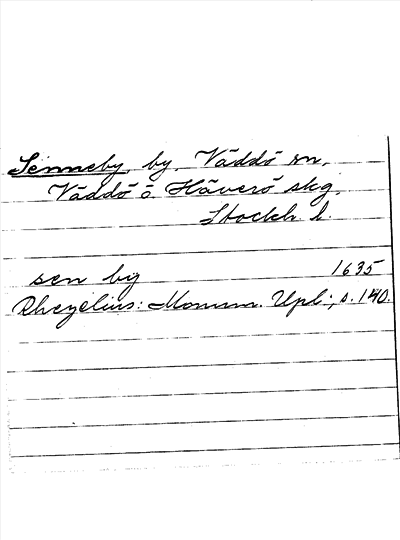 Senneby, by, Väddö sn,
Väddö o Häverö skg,
Stockh l.
sen by 1635
Rhezelius: Monum. Upl:, s. 140.